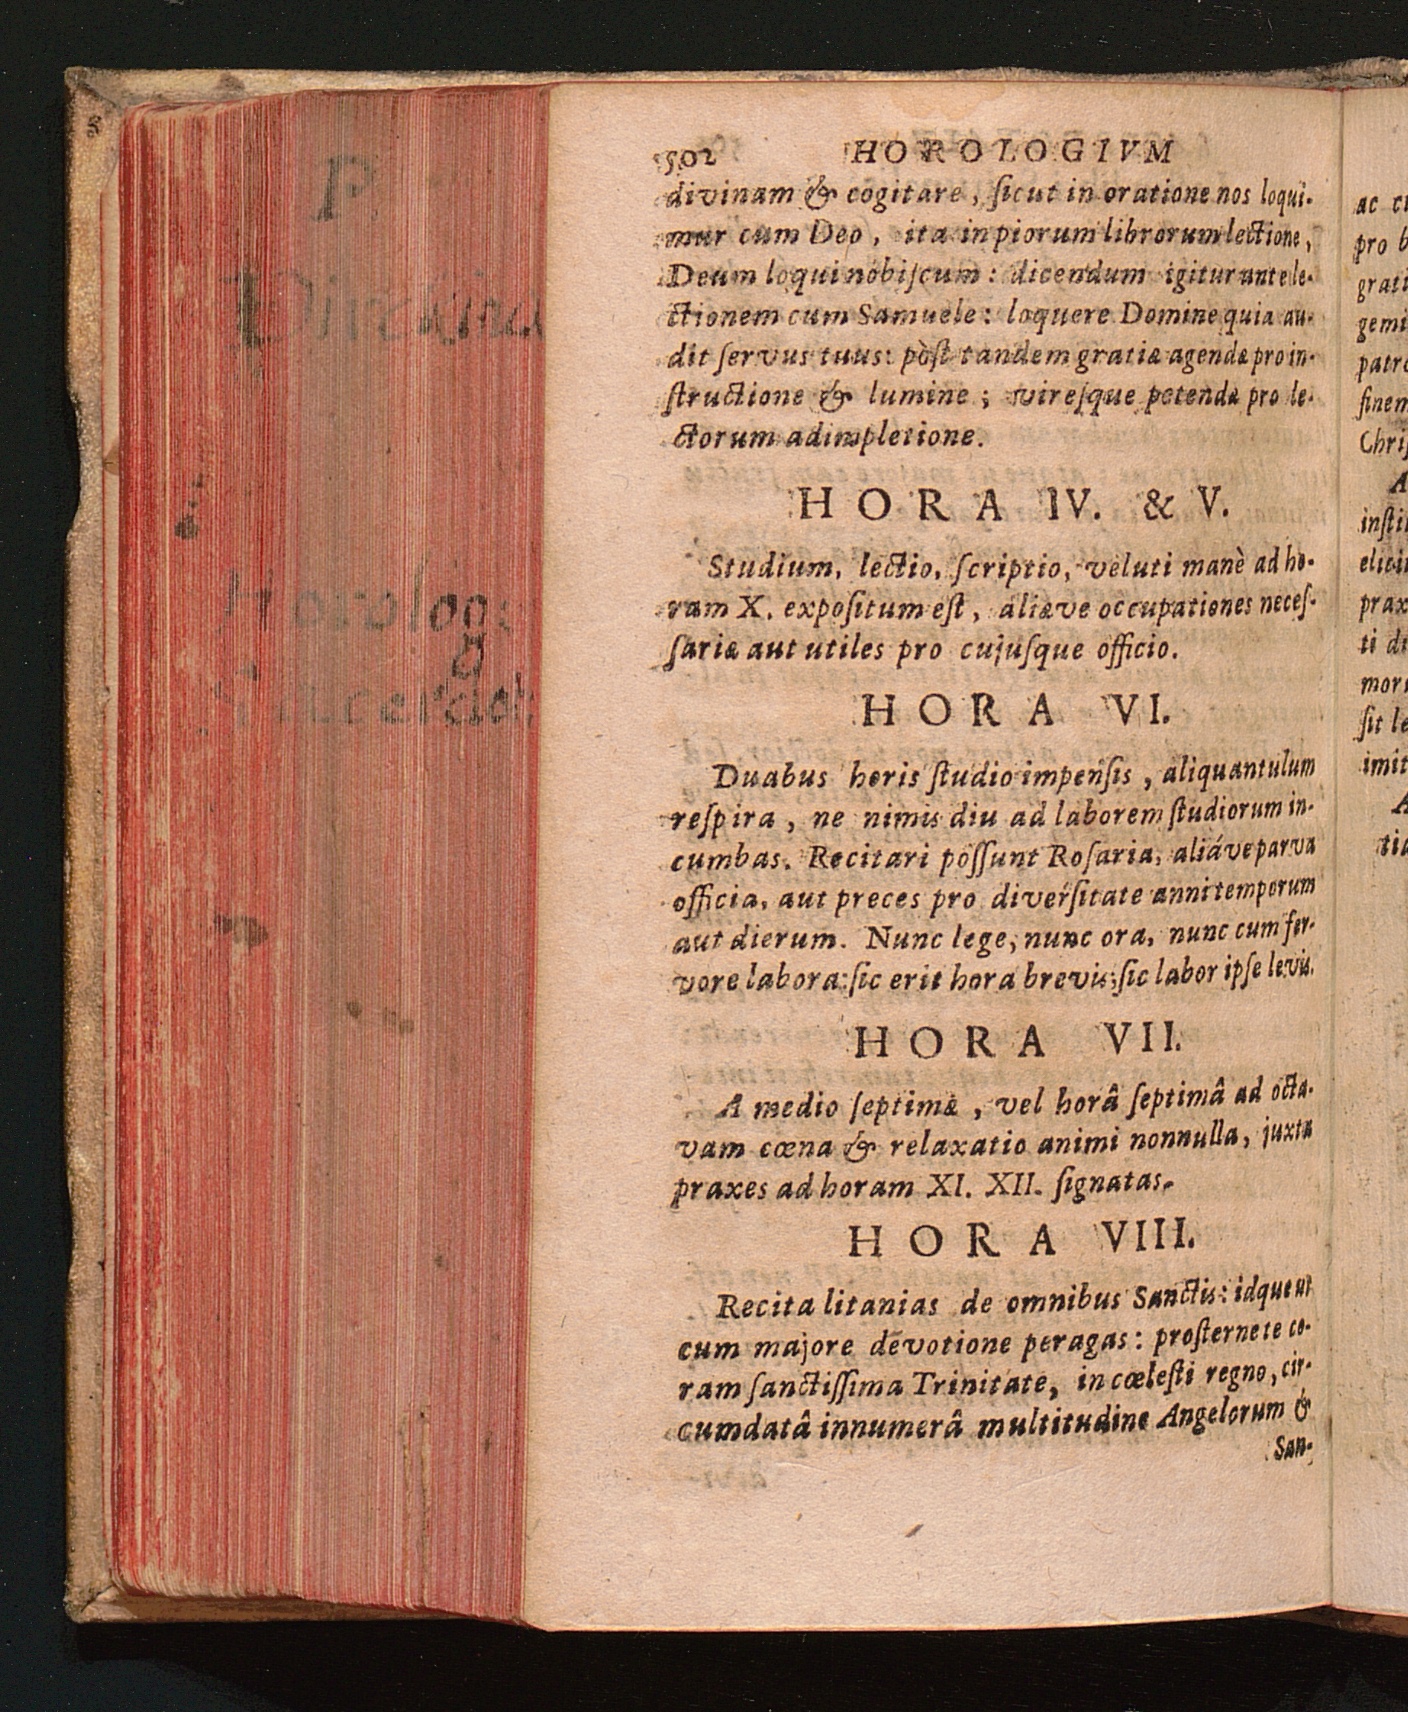 502 HOROLOGIVM
divinam & cogitare, ſicut in oratione nos loqui-
mur cum Deo, ita in piorum librorum lectione,
Deum loqui nobiſcum: dicendum igitur ante le-
ctionem cum Samuele: loquere Domine quia au-
dit ſervus tuus: pòſt tandem gratiæ agendæ pro in-
ſtructione & lumine; vireſque petendæ pro le-
ctorum adimpletione.
HORA IV. & V.
Studium, lectio, ſcriptio, veluti manè ad ho-
ram X. expoſitum eſt, aliæve occupationes neceſ-
ſariæ aut utiles pro cujuſque officio.
HORA VI.
Duabus horis ſtudio impenſis, aliquantulum
reſpira, ne nimis diu ad laborem ſtudiorum in-
cumbas. Recitari poſſunt Roſaria, aliáve parva
officia, aut preces pro diverſitate anni temporum
aut dierum. Nunc lege, nunc ora, nunc cum fer-
vore labora: ſic erit hora brevis; ſic labor ipſe levis.
HORA VII.
A medio ſeptimæ, vel horâ ſeptimâ ad octa-
vam cœna & relaxatio animi nonnulla, juxta
praxes ad horam XI. XII. ſignatas.
HORA VIII.
Recita litanias de omnibus Sanctis: idque ut
cum majore devotione peragas: proſterne te co-
ram ſanctiſſima Trinitate, in cœleſti regno, cir-
cumdatâ innumerâ multitudine Angelorum &
San-
P.
Horolog
ac
pro
gemi
patro
finem
Chriſ
A
inſti
prax
ti
ſit le
imit
A